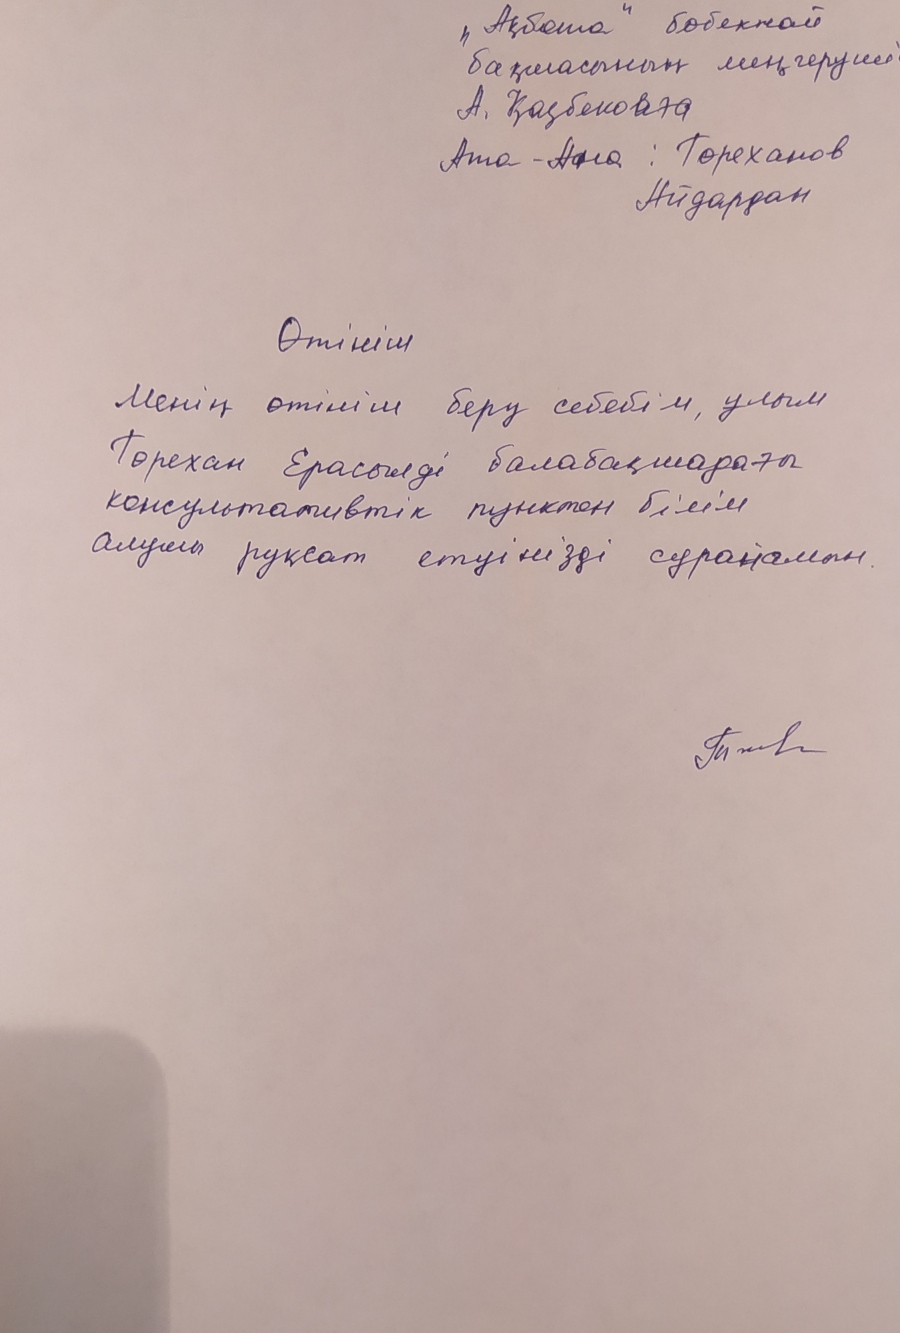 „Ақбота" бөбекжай
бақшасының меңгеруші
А. Қазбековаға
Ата-Ана: Төреханов
Айдардан
Өтініш
Менің өтініш беру себебім, ұлым
Төрехан Ерасылді балабақшадағы
консультативтік пунктен білім
алуы рұқсат етуінізді сұраймын.